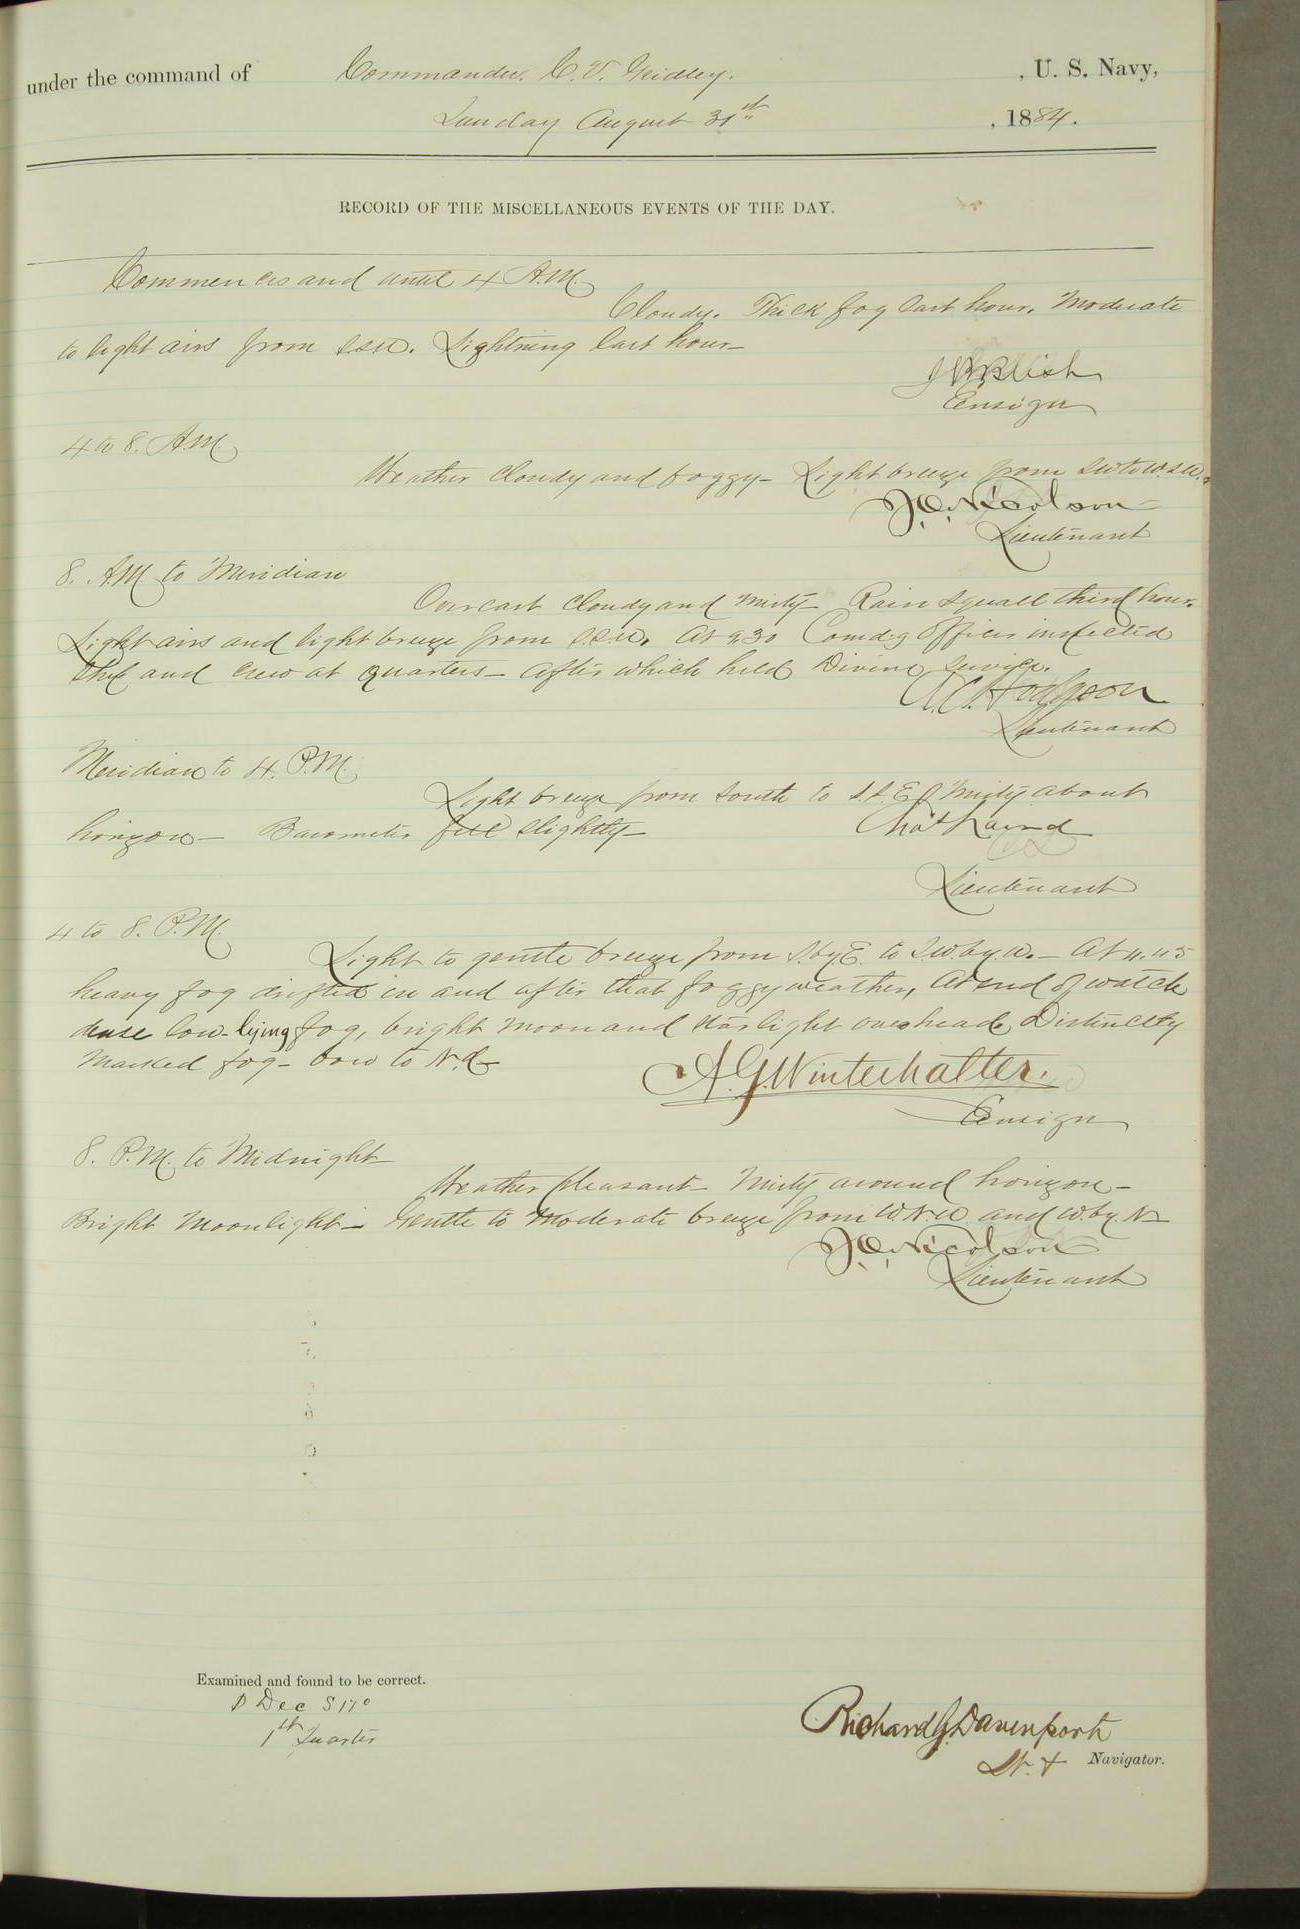 under the command of Commander. C. V. Gridley. , U. S. Navy,
Sunday August 31st , 1884.
RECORD OF THE MISCELLANEOUS EVENTS OF THE DAY.
Commences and until 4 A.M.
Cloudy. Thick fog last hour. Moderate
to light airs from S.S.W. Lightning last hour—
J B Blish
Ensign
4 to 8. A.M.
Weather cloudy and foggy— Light breeze from SW. to W.S.W.
J.O. Nicolson—
Lieutenant
8. A.M. to Meridian
Overcast cloudy and misty— Rain squall third hour.
Light airs and light breeze from S.S.W. At 9.30 Comd'g Officer inspected
Ship and crew at quarters— after which held Divine Service.
A.C. Hodgson
Lieutenant
Meridian to 4. P.M.
Light breeze from South to S.S.E. Misty about
horizon— Barometer fell slightly—
Chas. Laird
Lieutenant
4 to 8. P.M.
Light to gentle breeze from S. by E. to S.W. by W.— At 4.45
heavy fog drifted in and after that foggy weather, At end of watch
dense low-lying fog, bright moon and starlight overhead, Distinctly
marked fog-bow to N.d—
A.G. Winterhalter.
Ensign
8. P.M. to Midnight—
Weather pleasant— Misty around horizon—
Bright Moonlight— Gentle to moderate breeze from W.N.W. and W. by N—
J.O. Nicolson
Lieutenant
Examined and found to be correct.
Dec S 17°
1st Quarter
Richard G. Davenport
Lt. & Navigator.